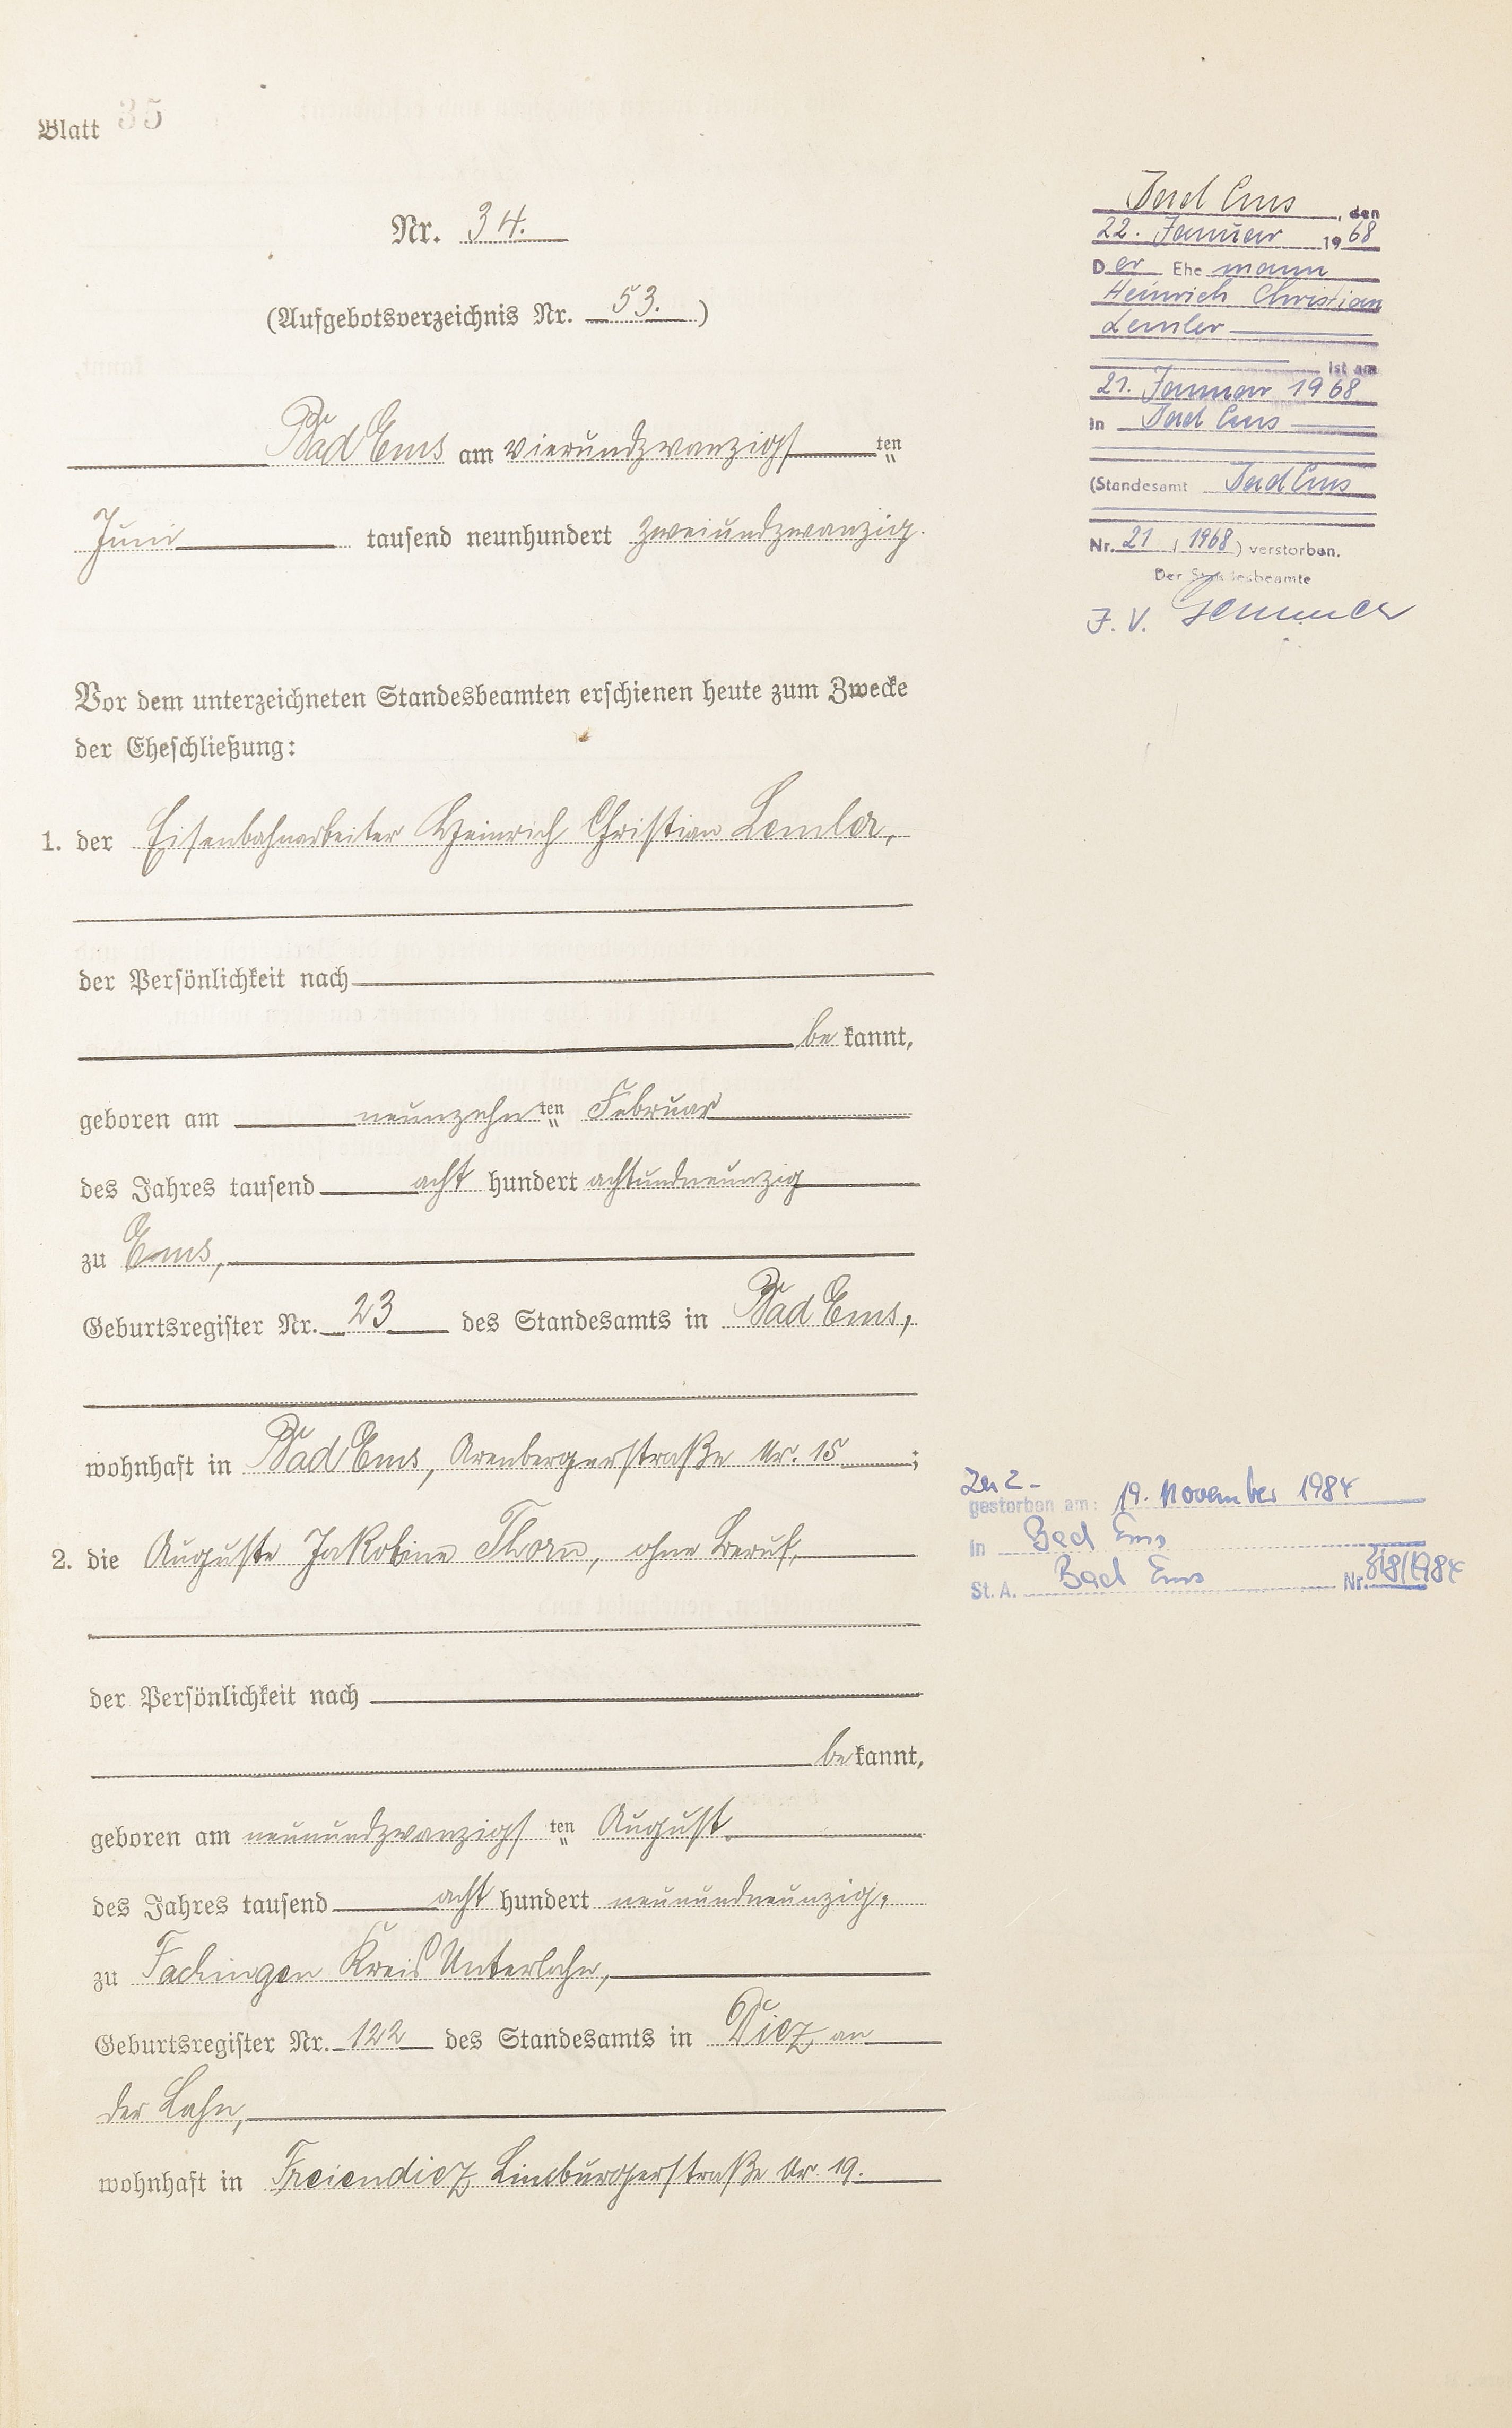 Blatt 35
Nr. 34.
(Aufgebotsverzeichnis Nr. 53.)
Bad Ems am vierundzwanzigsten
Juni tausend neunhundert zweiundzwanzig.
Vor dem unterzeichneten Standesbeamten erschienen heute zum Zwecke
der Eheschließung:
1. der Eisenbahnarbeiter Heinrich Christian Lemler,
der Persönlichkeit nach
bekannt,
geboren am neunzehnten Februar
des Jahres tausend acht hundert achtundneunzig
zu Ems,
Geburtsregister Nr. 23 des Standesamts in Bad Ems,
wohnhaft in Bad Ems, Arenbergerstraße Nr. 15;
2. die Auguste Jakobine Thorn, ohne Beruf,
der Persönlichkeit nach
bekannt,
geboren am neunundzwanzigsten August
des Jahres tausend acht hundert neunundneunzig,
zu Fachingen Kreis Unterlahn,
Geburtsregister Nr. 122 des Standesamts in Diez an
der Lahn,
wohnhaft in Freiendiez, Limburgerstraße Nr. 19.
Bad Ems, den
22. Januar 1968
Der Ehemann
Heinrich Christian
Lemler
ist am
21. Januar 1968
in Bad Ems
(Standesamt Bad Ems
Nr. 21 / 1968) verstorben.
Der Standesbeamte
J. V.
Zu 2-
gestorben am: 19. November 1984
in Bad Ems
St. A. Bad Ems Nr. 318/1984